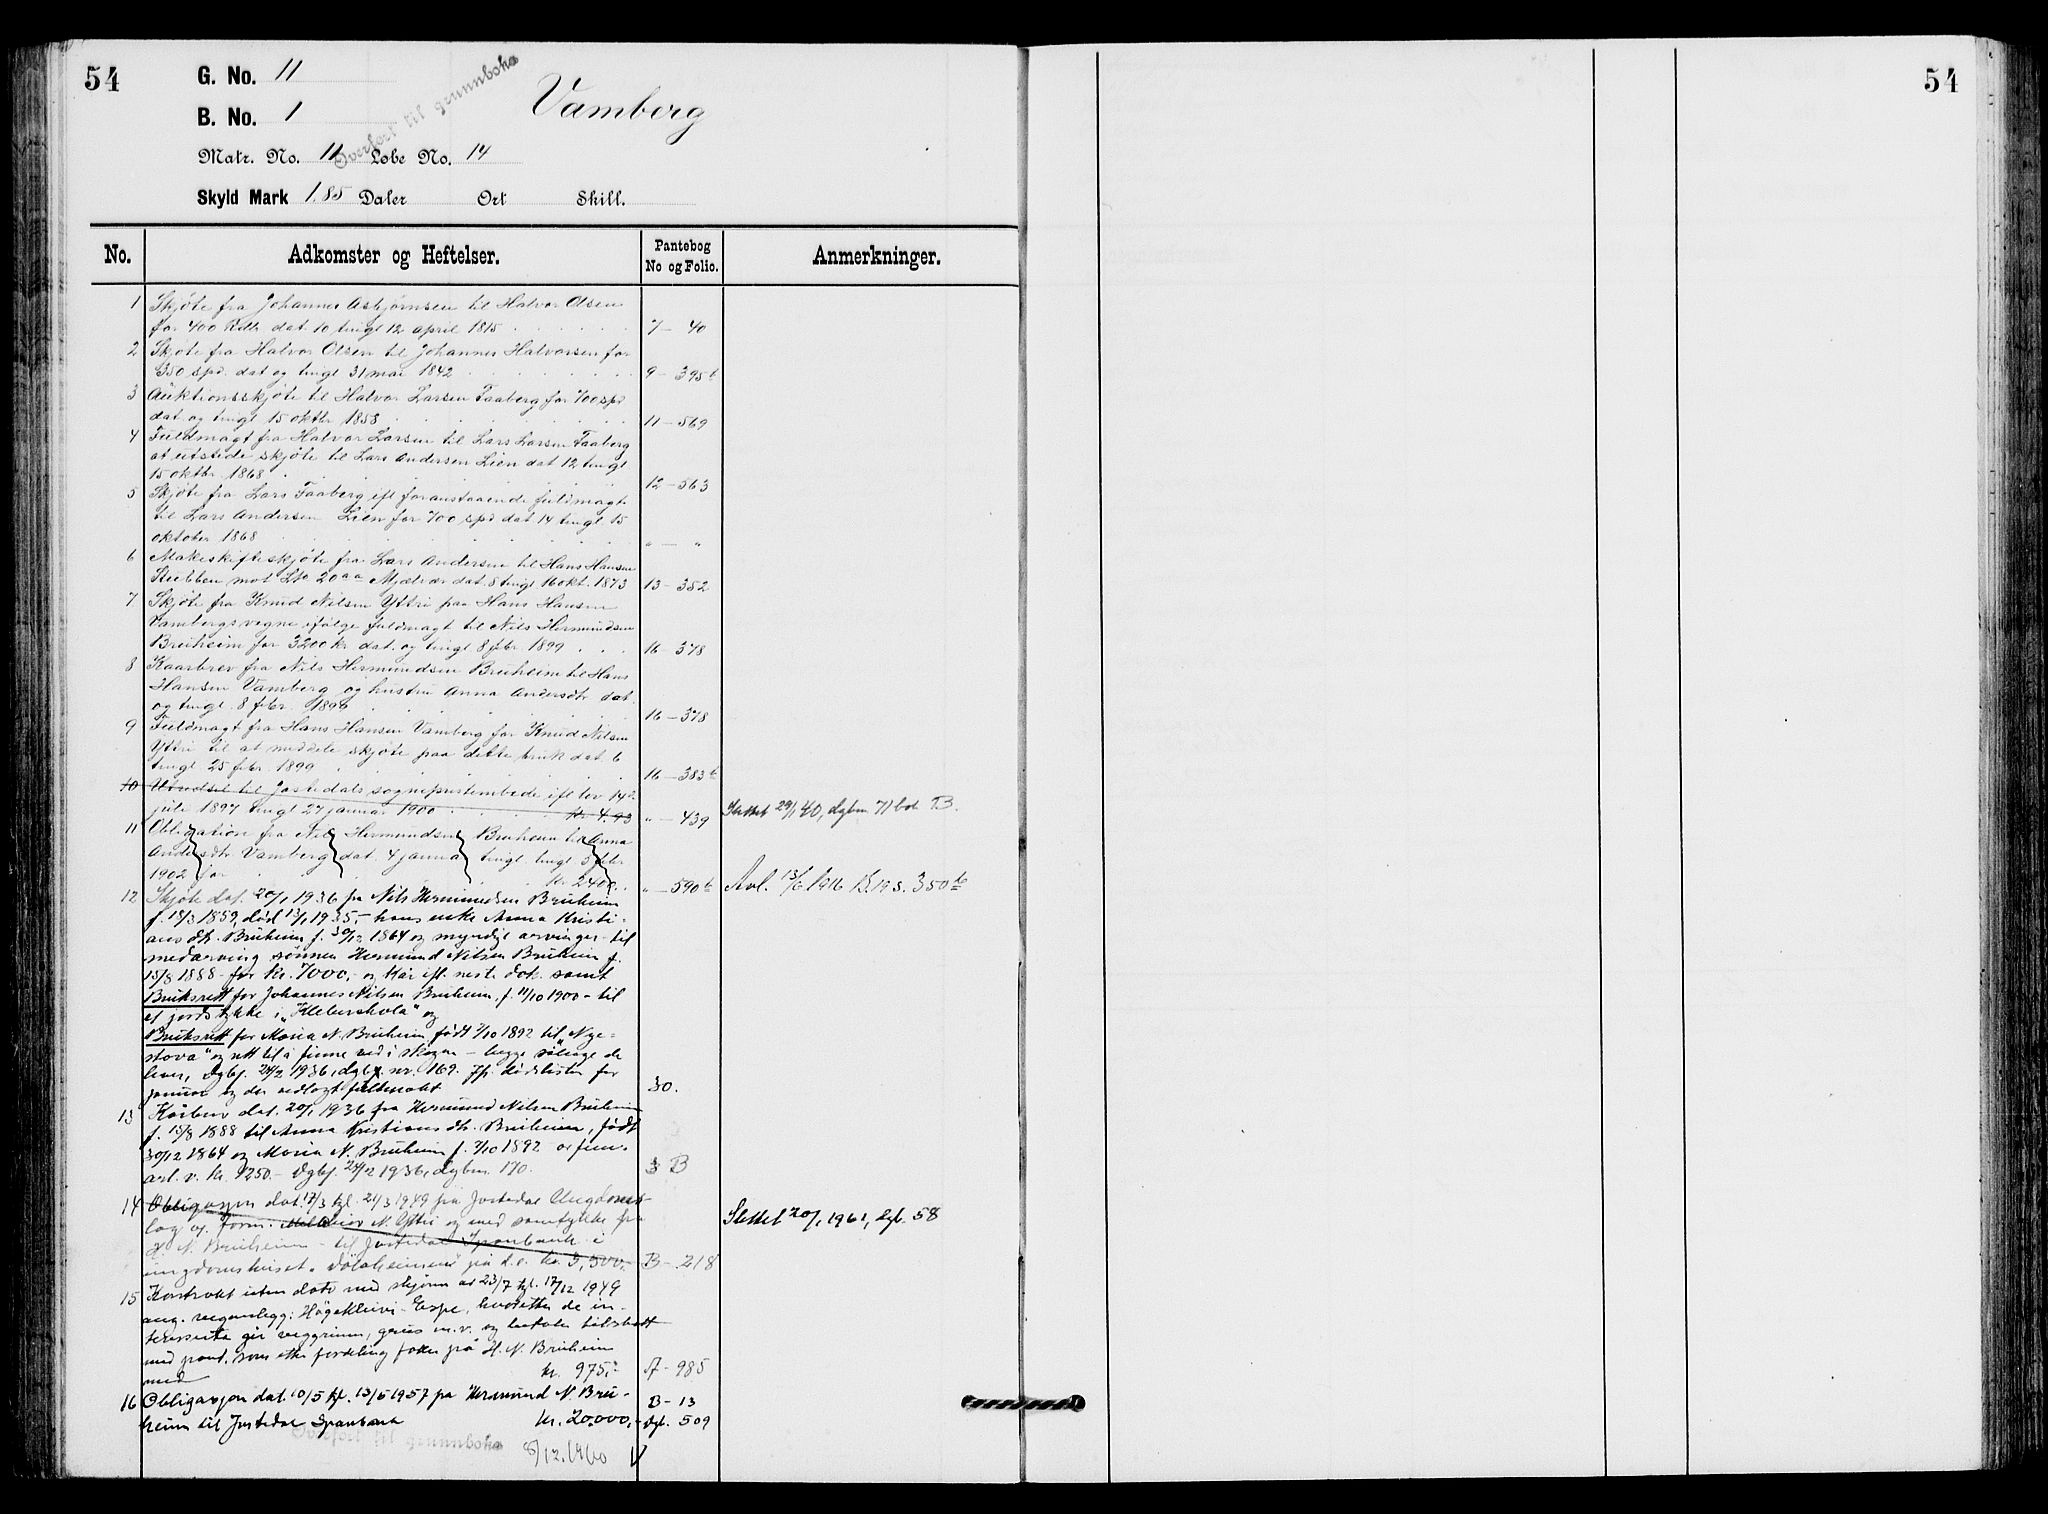 54
G. No. 11
B. No. 1
Overført til grunnboka
Vamberg
Matr. No. 11 Løbe No. 14
Skyld Mark 1.85 Daler Ort Skill.
54
No. Adkomster og Heftelser. Pantebog No og Folio. Anmerkninger.
1 Skjøte fra Johannes Asbjørnsen til Halvor Olsen
for 400 Rdlr dat 10 tingl 12 april 1815 7 - 40
2 Skjøte fra Halvor Olsen til Johannes Halvorsen for
350 spd. dat og tingl 31 mai 1842 9 - 395b
3 Auktionsskjøte til Halvor Larsen Faaberg for 700 spd
dat og tingl 15 oktbr 1858 11 - 569
4 Fuldmagt fra Halvor Larsen til Lars Larsen Faaberg
at utstede skjøte til Lars Andersen Lien dat 12 tingl
15 oktbr. 1868 12 - 563
5 Skjøte fra Lars Faaberg ifl foranstaaende fuldmagt
til Lars Andersen Lien for 700 spd dat 14 tingl 15
oktober 1868 " - "
6 Makeskifteskjøte fra Lars Andersen til Hans Hansen
Stubben mot Lno 20aa Mjelvær dat 8 tingl 16 okt. 1873 13 - 352
7 Skjøte fra Knud Nilsen Yttri paa Hans Hansen
Vambergs vegne ifølge fuldmagt til Nils Hermundsen
Bruheim for 3200 kr dat. og tingl 8 febr. 1899 16 - 378
8 Kaarbrev fra Nils Hermundsen Bruheim til Hans
Hansen Vamberg og hustru Anna Andersdtr dat.
og tingl. 8 febr. 1899 16 - 378
9 Fuldmagt fra Hans Hansen Vamberg for Knud Nilsen
Yttri til at meddele skjøte paa dette bruk dat. 6
tingl 25 febr. 1899 16 - 383b
10 til Jostedals sogneprestembede ifl lov 14de
juli 1897 tingl 27 januar 1900 Kr. 4.93 " - 439 Slettet 29/1 40, dgbnr 71 bd B.
11 Obligation fra Nils Hermundsen Bruheim til Anna
Andersdtr Vamberg dat. 4 januar tingl. tingl 3 febr
1902 for kr. 2400. " - 590b Avl. 13/6 1916 B. 19 s. 350b
12 Skjøte dat. 20/1 1936 fra Nils Hermundsen Bruheim
f. 18/3 1859, død 13/1 1935, - hans enke Anna Kristi-
ans dtr. Bruheim f. 30/12 1864 og myndige arvinger - til
medarving sønnen Hermund Nilsen Bruheim f.
15/8 1888 - for kr. 7000,- og kår ifl. neste dok. samt
Bruksrett for Johannes Nilsen Bruheim, f. 11/10 1900 - til
et jordstykke i „Kleberskola" og
Bruksrett for Maria N. Bruheim født 7/10 1892 til „Nye-
stova" og rett til å finne ved i skogen - begge sålenge de
lever, Dgbf. 24/2 1936, dgbnr. 169. Jfr. dødslister for
januar og der vedlagt fullmakt 30.
13 Kårbrev dat. 20/1 1936 fra Hermund Nilsen Bruheim
f. 15/8 1888 til Anna Kristians dtr. Bruheim, født
30/12 1864 og Maria N. Bruheim f. 7/10 1892 -
årl. v. kr. 250.- Dgbf. 24/2 1936, dgbnr. 170. 3 B
14 Obligasjon dat. 17/3 tgl. 21/3 1949 fra Jostedal Ungdoms-
lag og N. Yttri og med samtykke fra
H. N. Bruheim - til Jostedal Sparebank - i
ungdomshuset kr. 3,500,- B - 218 Slettet 20/1 1961, dgb. 58
15 Kontrakt uten dato med skjønn av 23/7 tgl. 17/12 1949
ang. veganlegg: Högekleivi - Espe, hvoretter de in-
teresserte gir veggrunn, gjerus m.v. og betaler tilskott
med pant, som etter fordeling faller på H. N. Bruheim
med kr. 975,- A - 985
16 Obligasjon dat. 10/5 tgl. 13/5 1957 fra Hermund N. Bru- B - 13
heim til Jostedal Sparebank kr. 20.000,- Dgb. 509
Overført til grunnboka
8/12. 1960